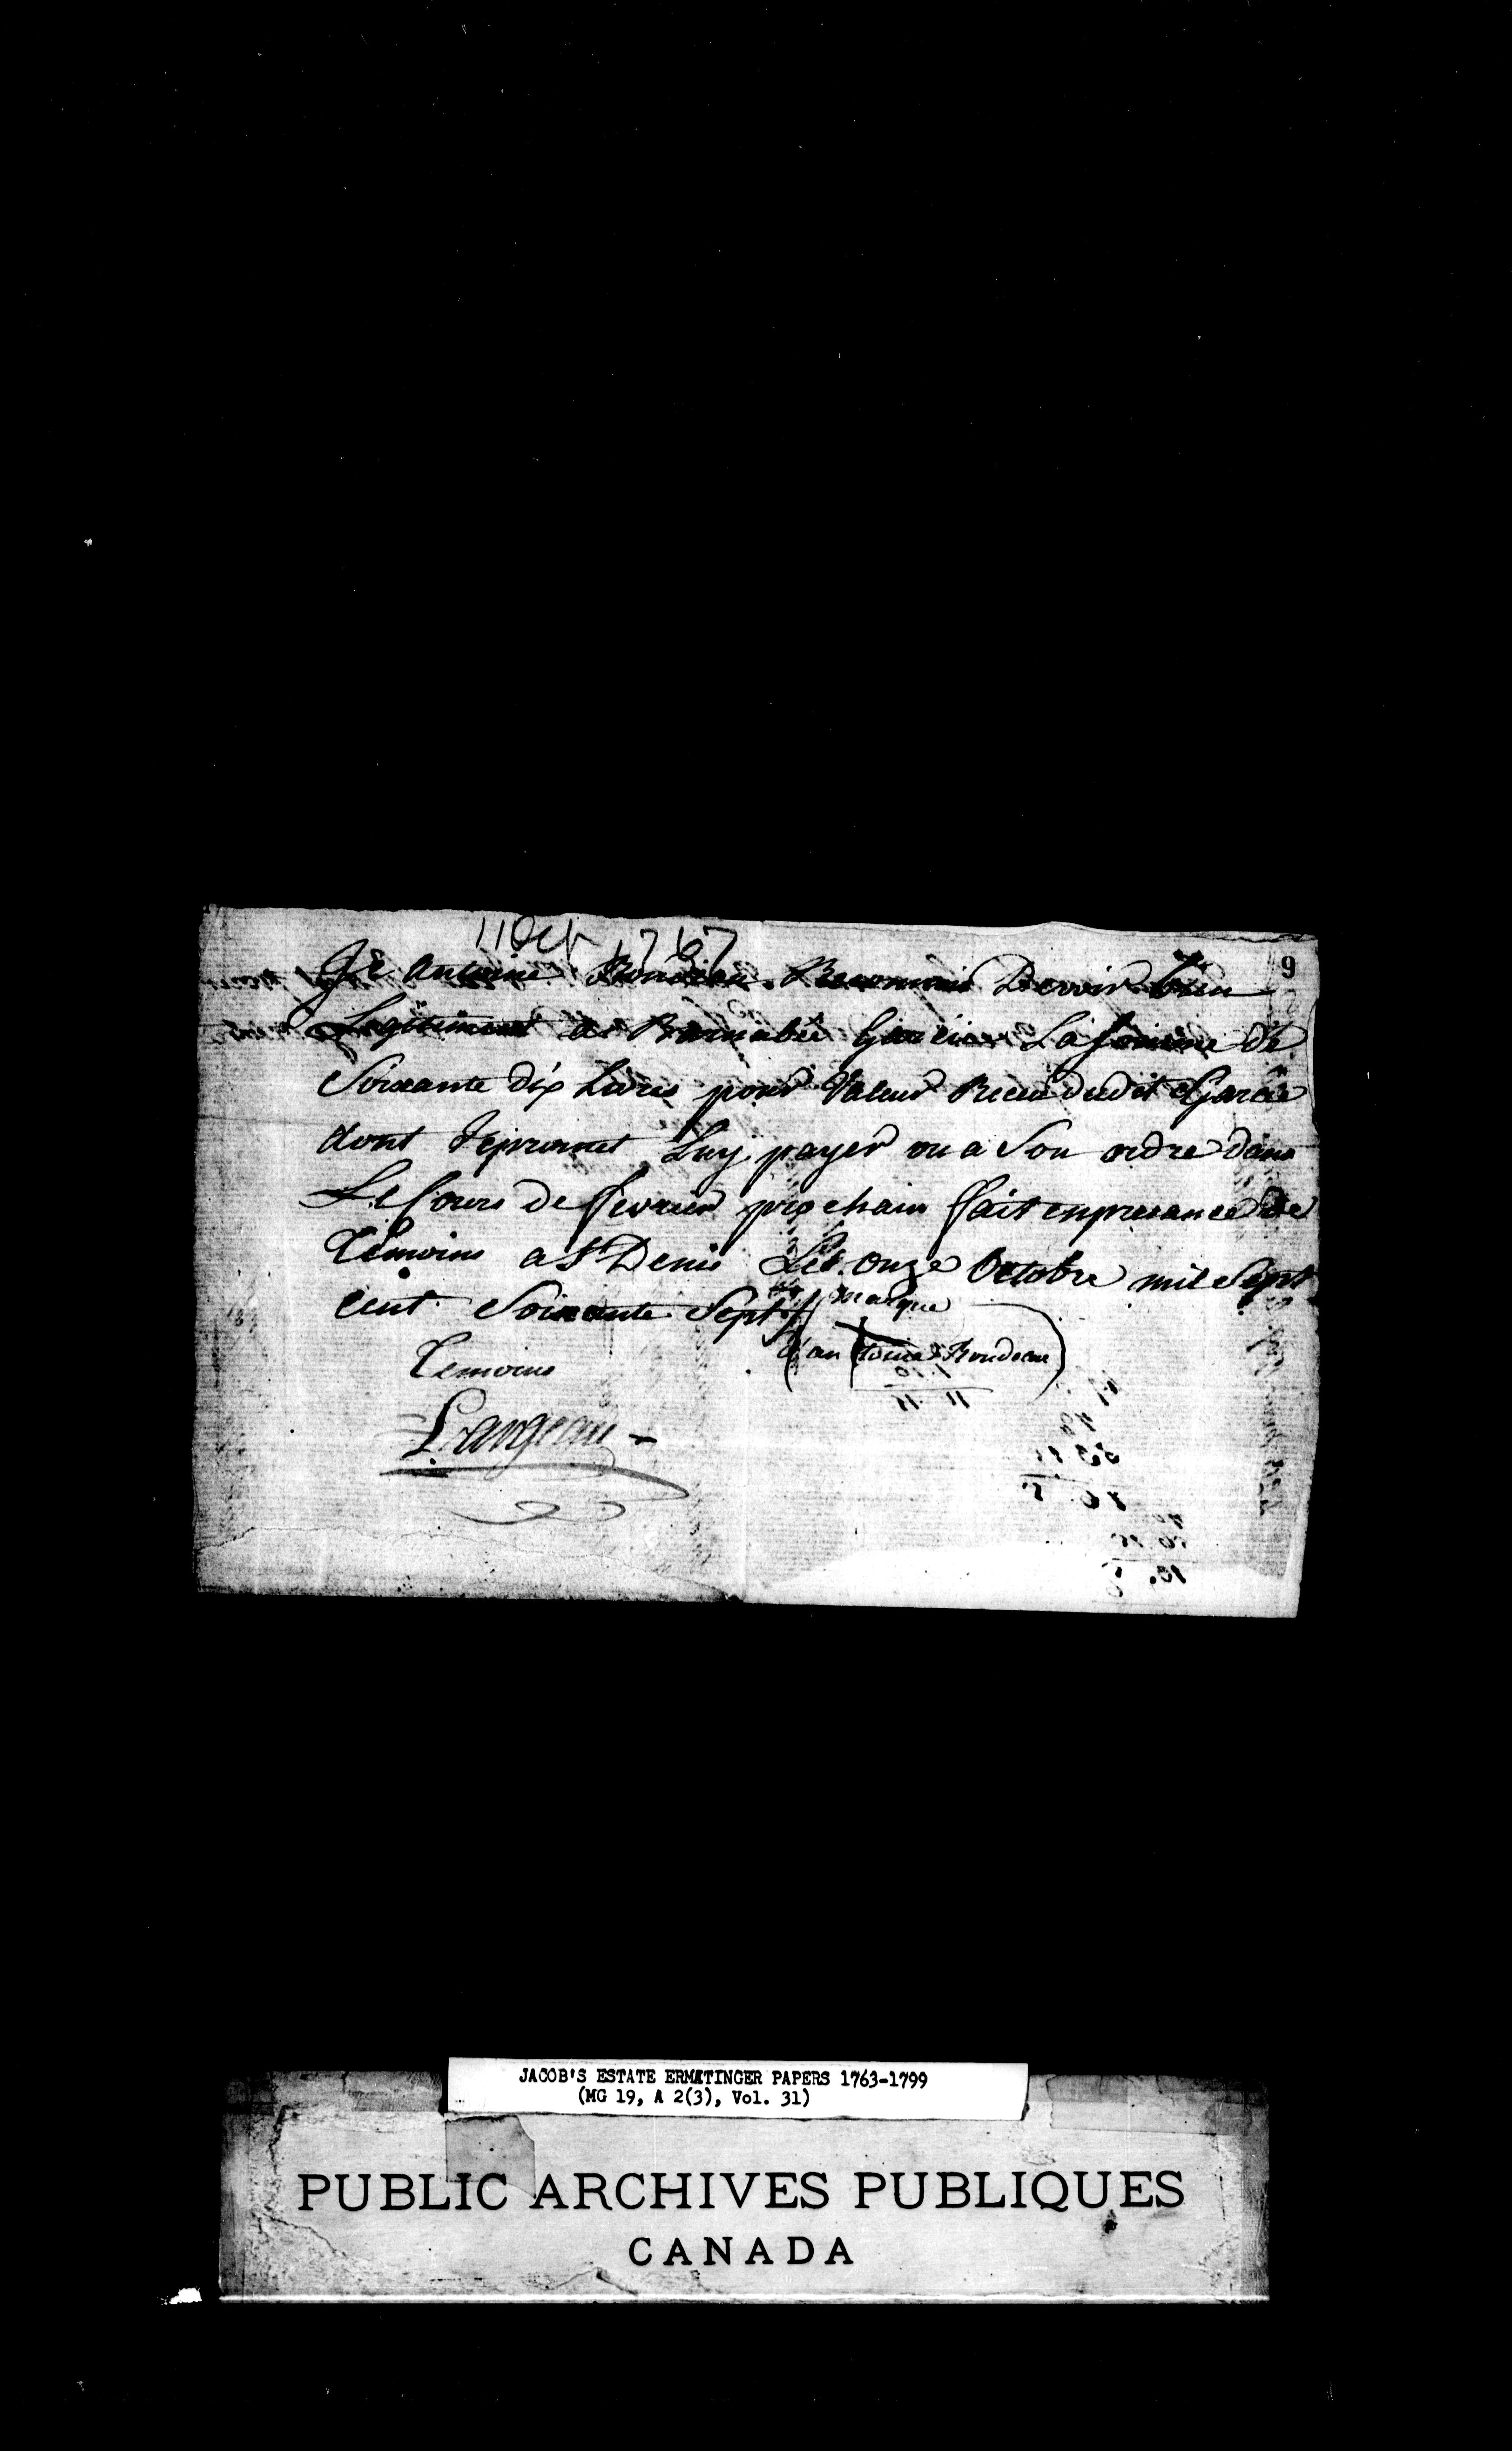 11 Oct 1767
9
Je Antoine Rondeau Reconnois Devoir bien
Legitiment a Barnabée Garcie La somme de
Soixante dix Livres pour Valeur Receu dudit Garcie
dont Jepromet Luy payer ou a Son ordre dans
Le Cours de fevrier prochain fait enpresance de
Témoins a St Denis Les Onze Octobre mil Sept
cent Soixante Sept
marque
d'antoine Rondeau
Temoins
JACOB'S ESTATE ERMATINGER PAPERS 1763-1799
(MG 19, A 2(3), Vol. 31)
PUBLIC ARCHIVES PUBLIQUES
CANADA